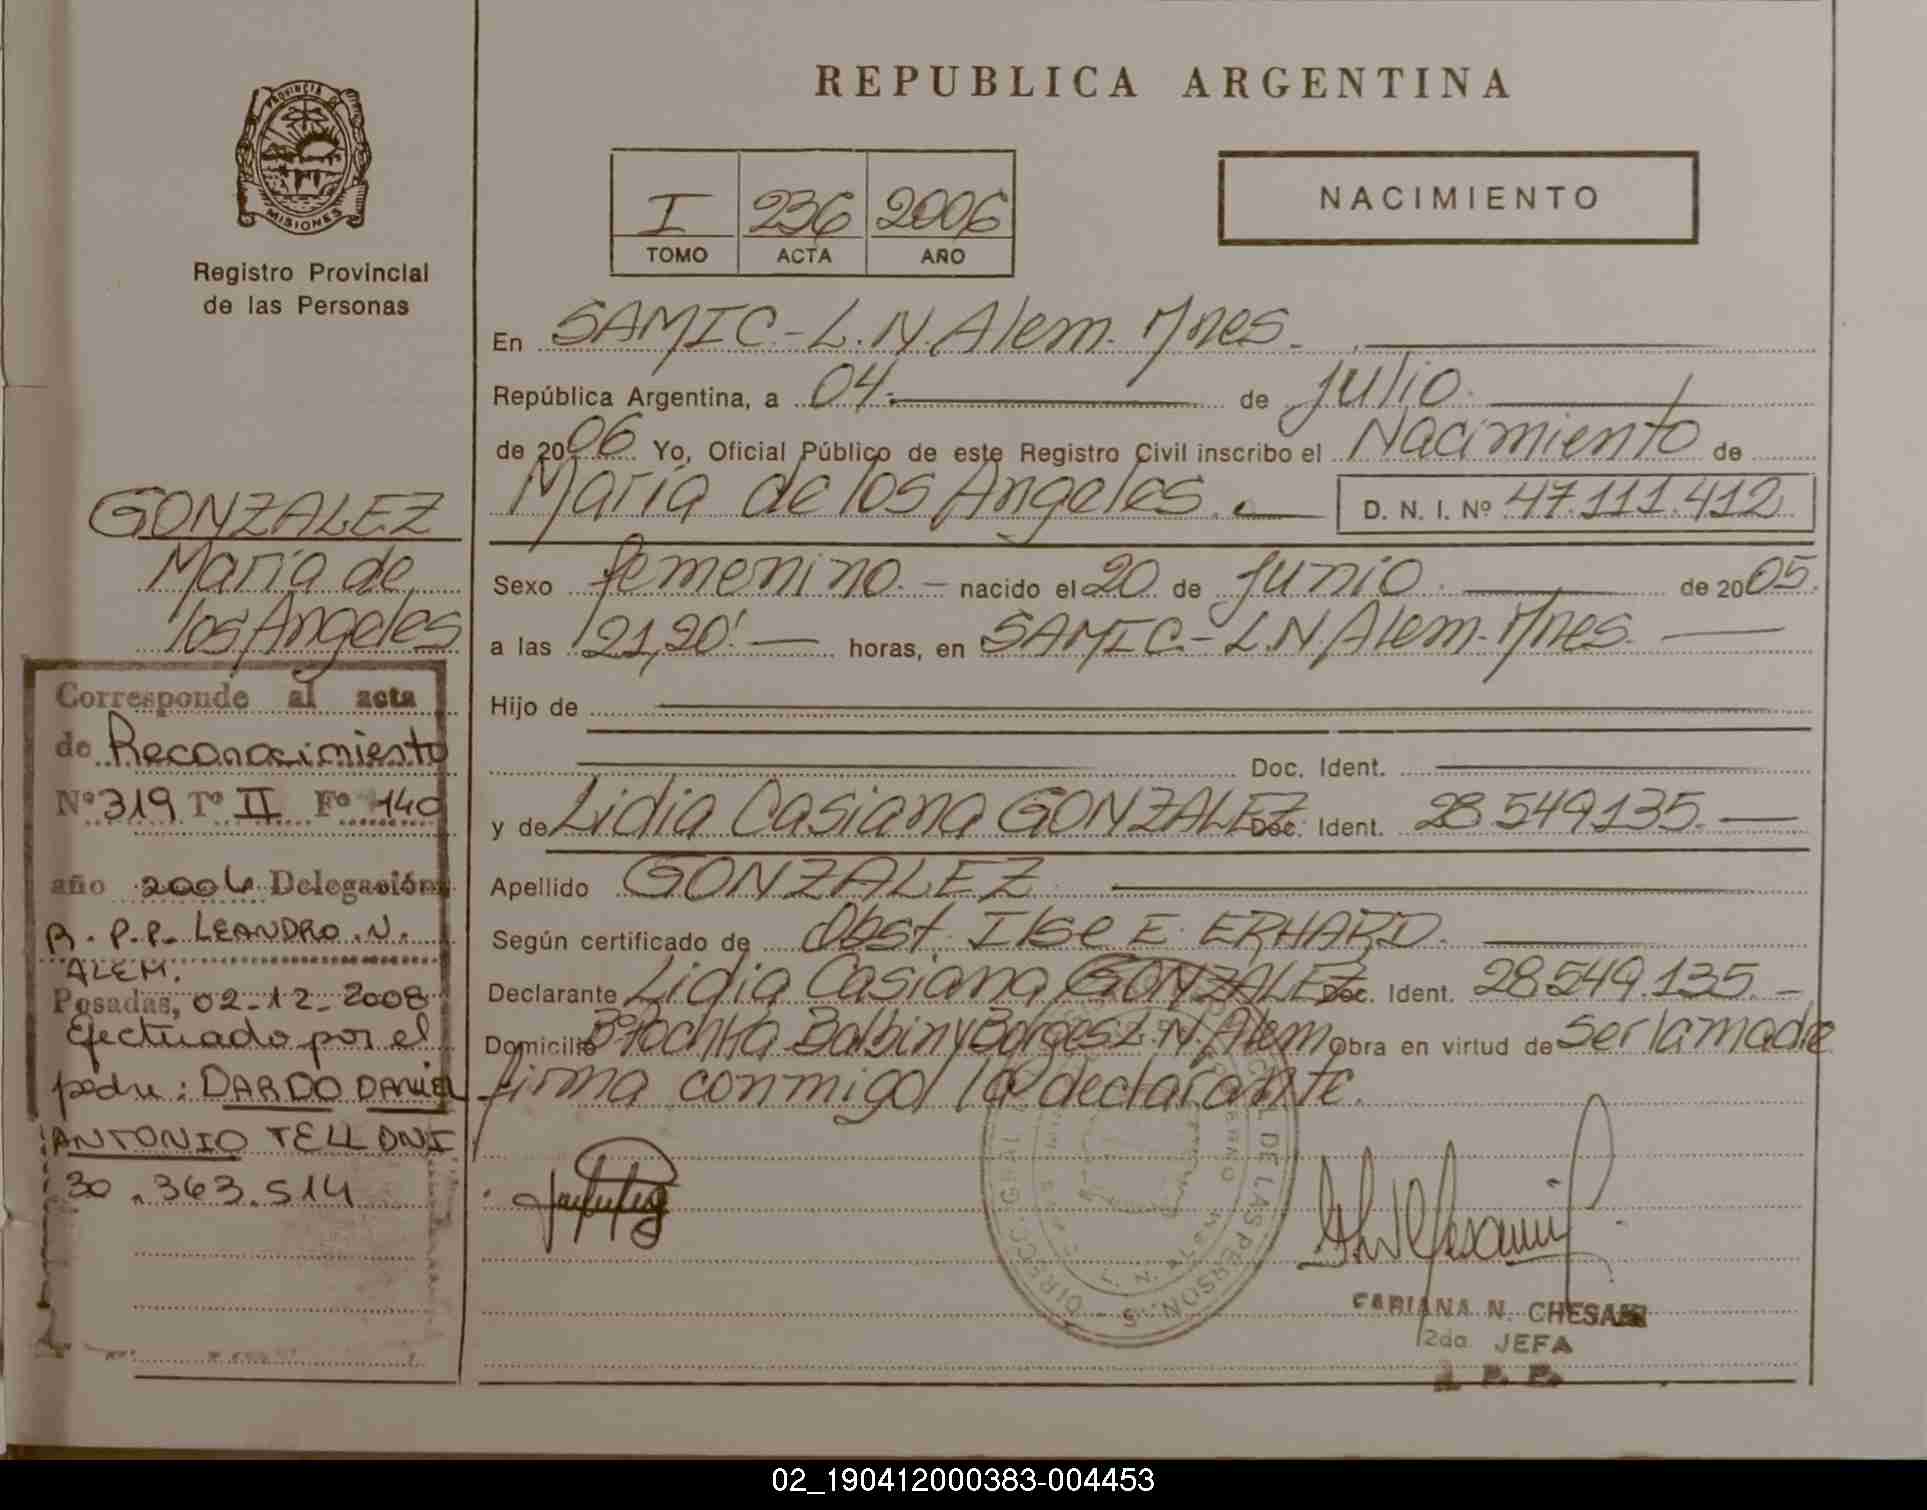 PROVINCIA DE
MISIONES
Registro Provincial
de las Personas
GONZALEZ
María de
los Angeles
Corresponde al acta
de Reconocimiento
Nº 319 Tº II Fº 140
año 2006 Delegación
R.P.P. LEANDRO.N.
ALEM.
Posadas, 02-12-2008
Efectuado por el
padre: DARDO DANIEL
ANTONIO TELL DNI
30.363.514
REPUBLICA ARGENTINA
I 236 2006
TOMO ACTA AÑO
NACIMIENTO
En SAMIC-L.N.Alem. Mnes.
República Argentina, a 04. de julio.
de 2006 Yo, Oficial Público de este Registro Civil inscribo el Nacimiento de
María de los Angeles. D. N. I. Nº 47.111.412
Sexo femenino.- nacido el 20 de Junio. de 2005.
a las 21,20' horas, en SAMIC-L.N.Alem-Mnes.
Hijo de
Doc. Ident.
y de Lidia Casiana GONZALEZ Doc. Ident. 28.549.135.
Apellido GONZALEZ.
Según certificado de Obst. Ilse E. ERHARD.
Declarante Lidia Casiana GONZALEZ Doc. Ident. 28.549.135.-
Domicilio Bº Pochita Balbin y Borges L.N.Alem Obra en virtud de ser la madre
firma conmigo la declarante.
FABIANA N. CHESANI
2da. JEFA
R. P. P.
02_190412000383-004453